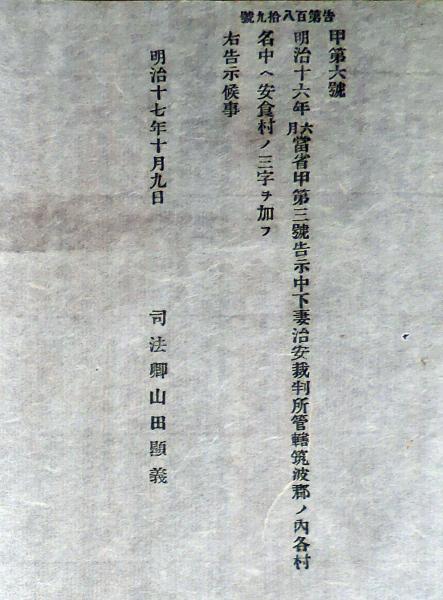 告第百八拾九號
甲第六號
明治十六年六月當省甲第三號告示中下妻治安裁判所管轄筑波郡ノ內各村
名中ヘ安食村ノ三字ヲ加フ
右告示候事
明治十七年十月九日
司法卿山田顯義